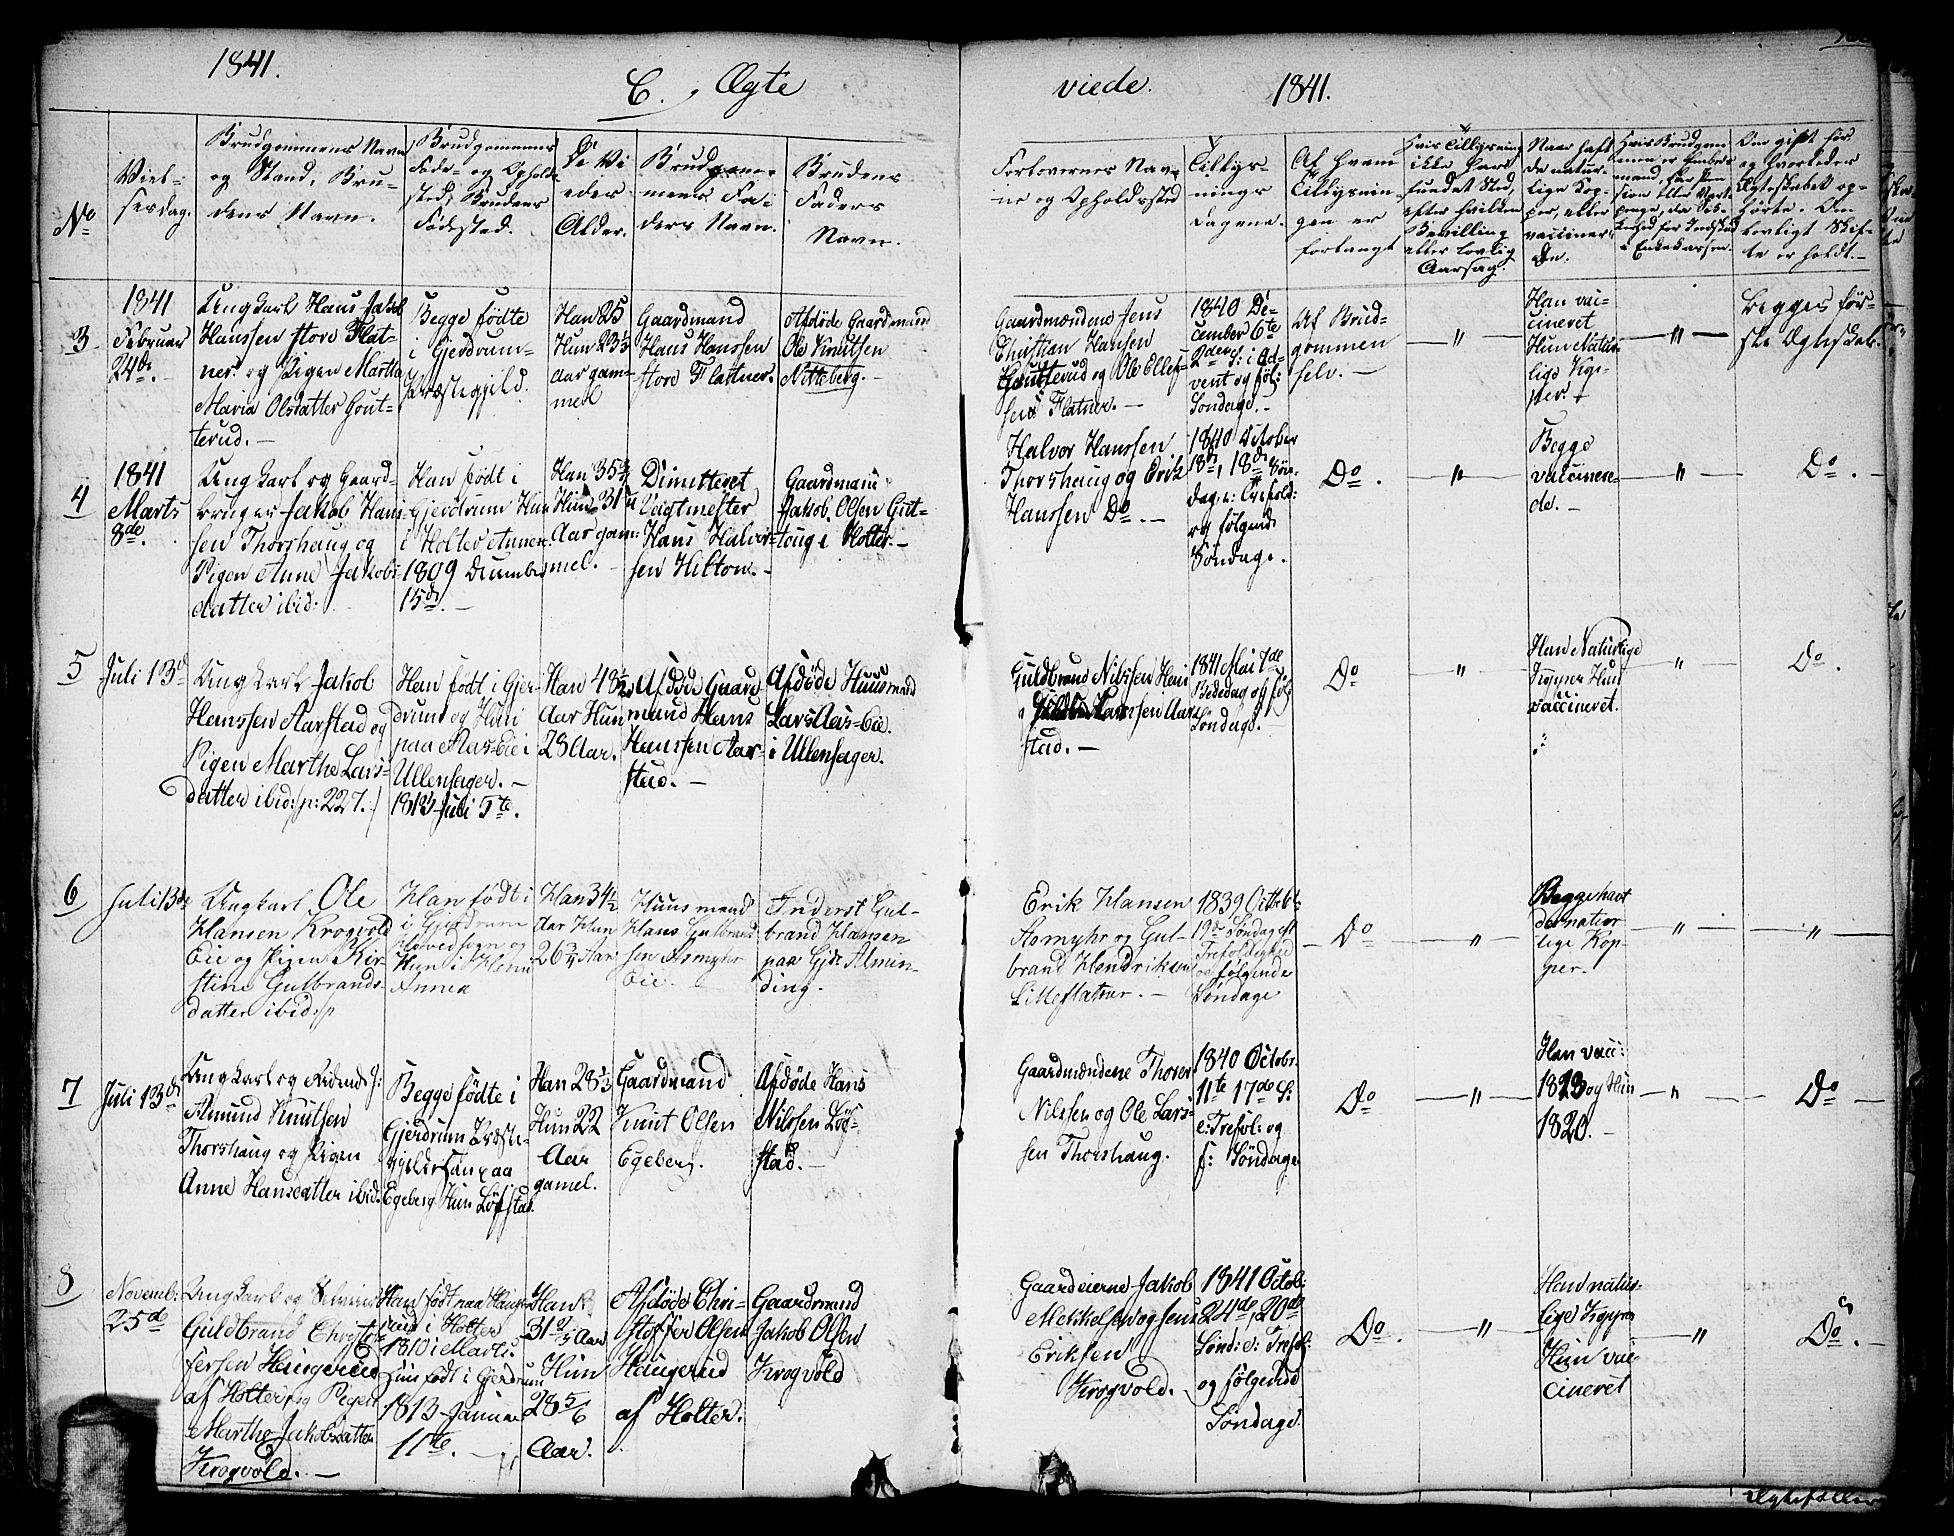 1841.
C. Ægte
viede.
1841.
No
Viel-
sesdag.
Brudgommens Navn
og Stand, Bru-
dens Navn.
Brudgommens
Føde- og Opholds-
sted, Brudens
Fødested.
De Vi-
edes
Alder.
Brudgom-
mens Fa-
ders Navn.
Brudens
Faders
Navn.
Forlovernes Nav-
ne og Opholdssted
Tillys-
nings
dagene.
Af hvem
Tillysnin-
gen er
forlangt
Hvis Tillysning
ikke har
fundet Sted,
efter hvilken
Bevilling
eller lovlig
Aarsag.
Naar haft
de natur-
lige Kop-
per, eller
vaccinere-
de.
Om gift før
og hvorledes
Ægteskabet op-
hørte. Om
lovligt Skif-
te er holdt.
3
1841
Februar
24de.
Ungkarl Hans Jakob
Hanssen store Flat-
ner og Pigen Martha
Maria Olsdatter Gout-
terud.
Begge fødte
i Gjerdrum-
Præstegjeld.
Han 25
Hun 23½
aar gam-
mel
Gaardmand
Hans Hanssen
store Flattner.
Afdøde Gaardmand
Ole Knutsen
Nitteberg.
Gaardmændene Jens
Christian Hansen
Goutterud og Ole Ellef-
sen Flatner.
1840 De-
cember 6te
2den S: i Ad-
vent og føl:
Søndage.
Af Brud-
gommen
selv.
"
Han vac-
cineret
Hun Natur-
lige Kop-
per.
"
Begges før-
ste Ægteskab.
4
1841
Marts
8de.
Ungkarl og Gaard-
bruger Jakob Hans-
sen Thorshaug og
Pigen Anne Jakobs-
datter ibid:
Han født i
Gjerdrum Hun
i Holter Annex
1809 December
15de.
Han 35¾
Hun 31¼
Aar gam-
mel.
Dimitteret
Vagtmester
Hans Halvor-
sen Hilton.
Gaardmand
Jakob Olsen Gut-
toug i Holter.
Halvor Hanssen
Thorshaug og Erik
Hanssen Do.
1840 October
18de, 18de Søn-
dag e: Trefold:
og følgende
Søndage.
Do.
"
Begge
vaccinere-
de.
"
Do.
5
Juli 13de
Ungkarl Jakob
Hanssen Aarstad og
Pigen Marthe Lars-
datter ibid: /p: 227./
Han født i Gjer-
drum og Hun
paa Aas-Eie i
Ullensager.
1813 Juli 7te.
Han 48½
Aar Hun
28 Aar.
Afdøde Gaard-
mand Hans
Hanssen Aar-
stad.
Afdøde Huusmand
Lars Aas-Eie.
i Ullensager.
Guldbrand Nilssen Heni
Hanssen Aar-
stad.
1841 Mai 7de
Bededag og føl:
Søndage.
Do
"
Han Naturlige
Kopper Hun
vaccineret.
"
Do.
6
Juli 13de
Ungkarl Ole
Hansen Krogvold
Eie og Pigen Kir-
stine Gulbrands-
datter ibid:
Han født i
i Gjerdrum
Hovedsogn og
Hun i Heni
Annex
Han 34½
Aar Hun
26¾ Aar
Huusmand
Hans Gulbrand-
sen Asmyhr
Eie.
Anderst Gul-
brand Hansen
paa Gjdr. Almin-
ding.
Erik Hansen
Asmyhr og Gul-
brand Hendriksen
Lilleflatner.
1839 Octob:
19de Søndag eft
Trefoldighed
og følgende
Søndage
Do
"
Begge havt
de natur-
lige Kop-
per.
"
"
7
Juli 13de
Ungkarl og
Amund Knutsen
Thorshaug og Pigen
Anne Hansdatter ibid:
Begge fødte i
Gjerdrum Præste-
gjeld Han paa
Egeberg Hun Løfstad.
Han 28⅓
Hun 22
Aar
gamel.
Gaardmand
Knut Olsen
Egeberg.
Afdøde Hans
Nilssen Løf-
stad.
Gaardmændene Thorer
Nilssen og Ole Lars-
sen Thorshaug.
1840 Octobr.
11te 17de S:
e: Trefol: og
f: Søndage
Do
"
Han vacc:
1813 og Hun
1820.
"
Do
8
Novemb:
25de
Ungkarl og
Guldbrand Christo-
fersen Haugerud
af Holter og Pigen
Marthe Jakobsdatter
Krogvold.
Han født paa Hauge-
rud i Holter
1810 i Marts.
Hun født i Gjerdrum
1813 Januar
11te.
Han
31¾ Aar
Hun
28 5/6
Aar.
Afdøde Chri-
stoffer Olsen
Haugerud
af Holter.
Gaardmand
Jakob Olsen
Krogvold
Gaardeierne Jakob
Mekkelsen og Jens
Eriksen
Krogvold.
1841 Octob:
24de, 20de
Sønd: e: Trefol:
og følgende
Søndage.
Do.
"
Han natur-
lige Kopper
Hun vac-
cineret
"
Do.